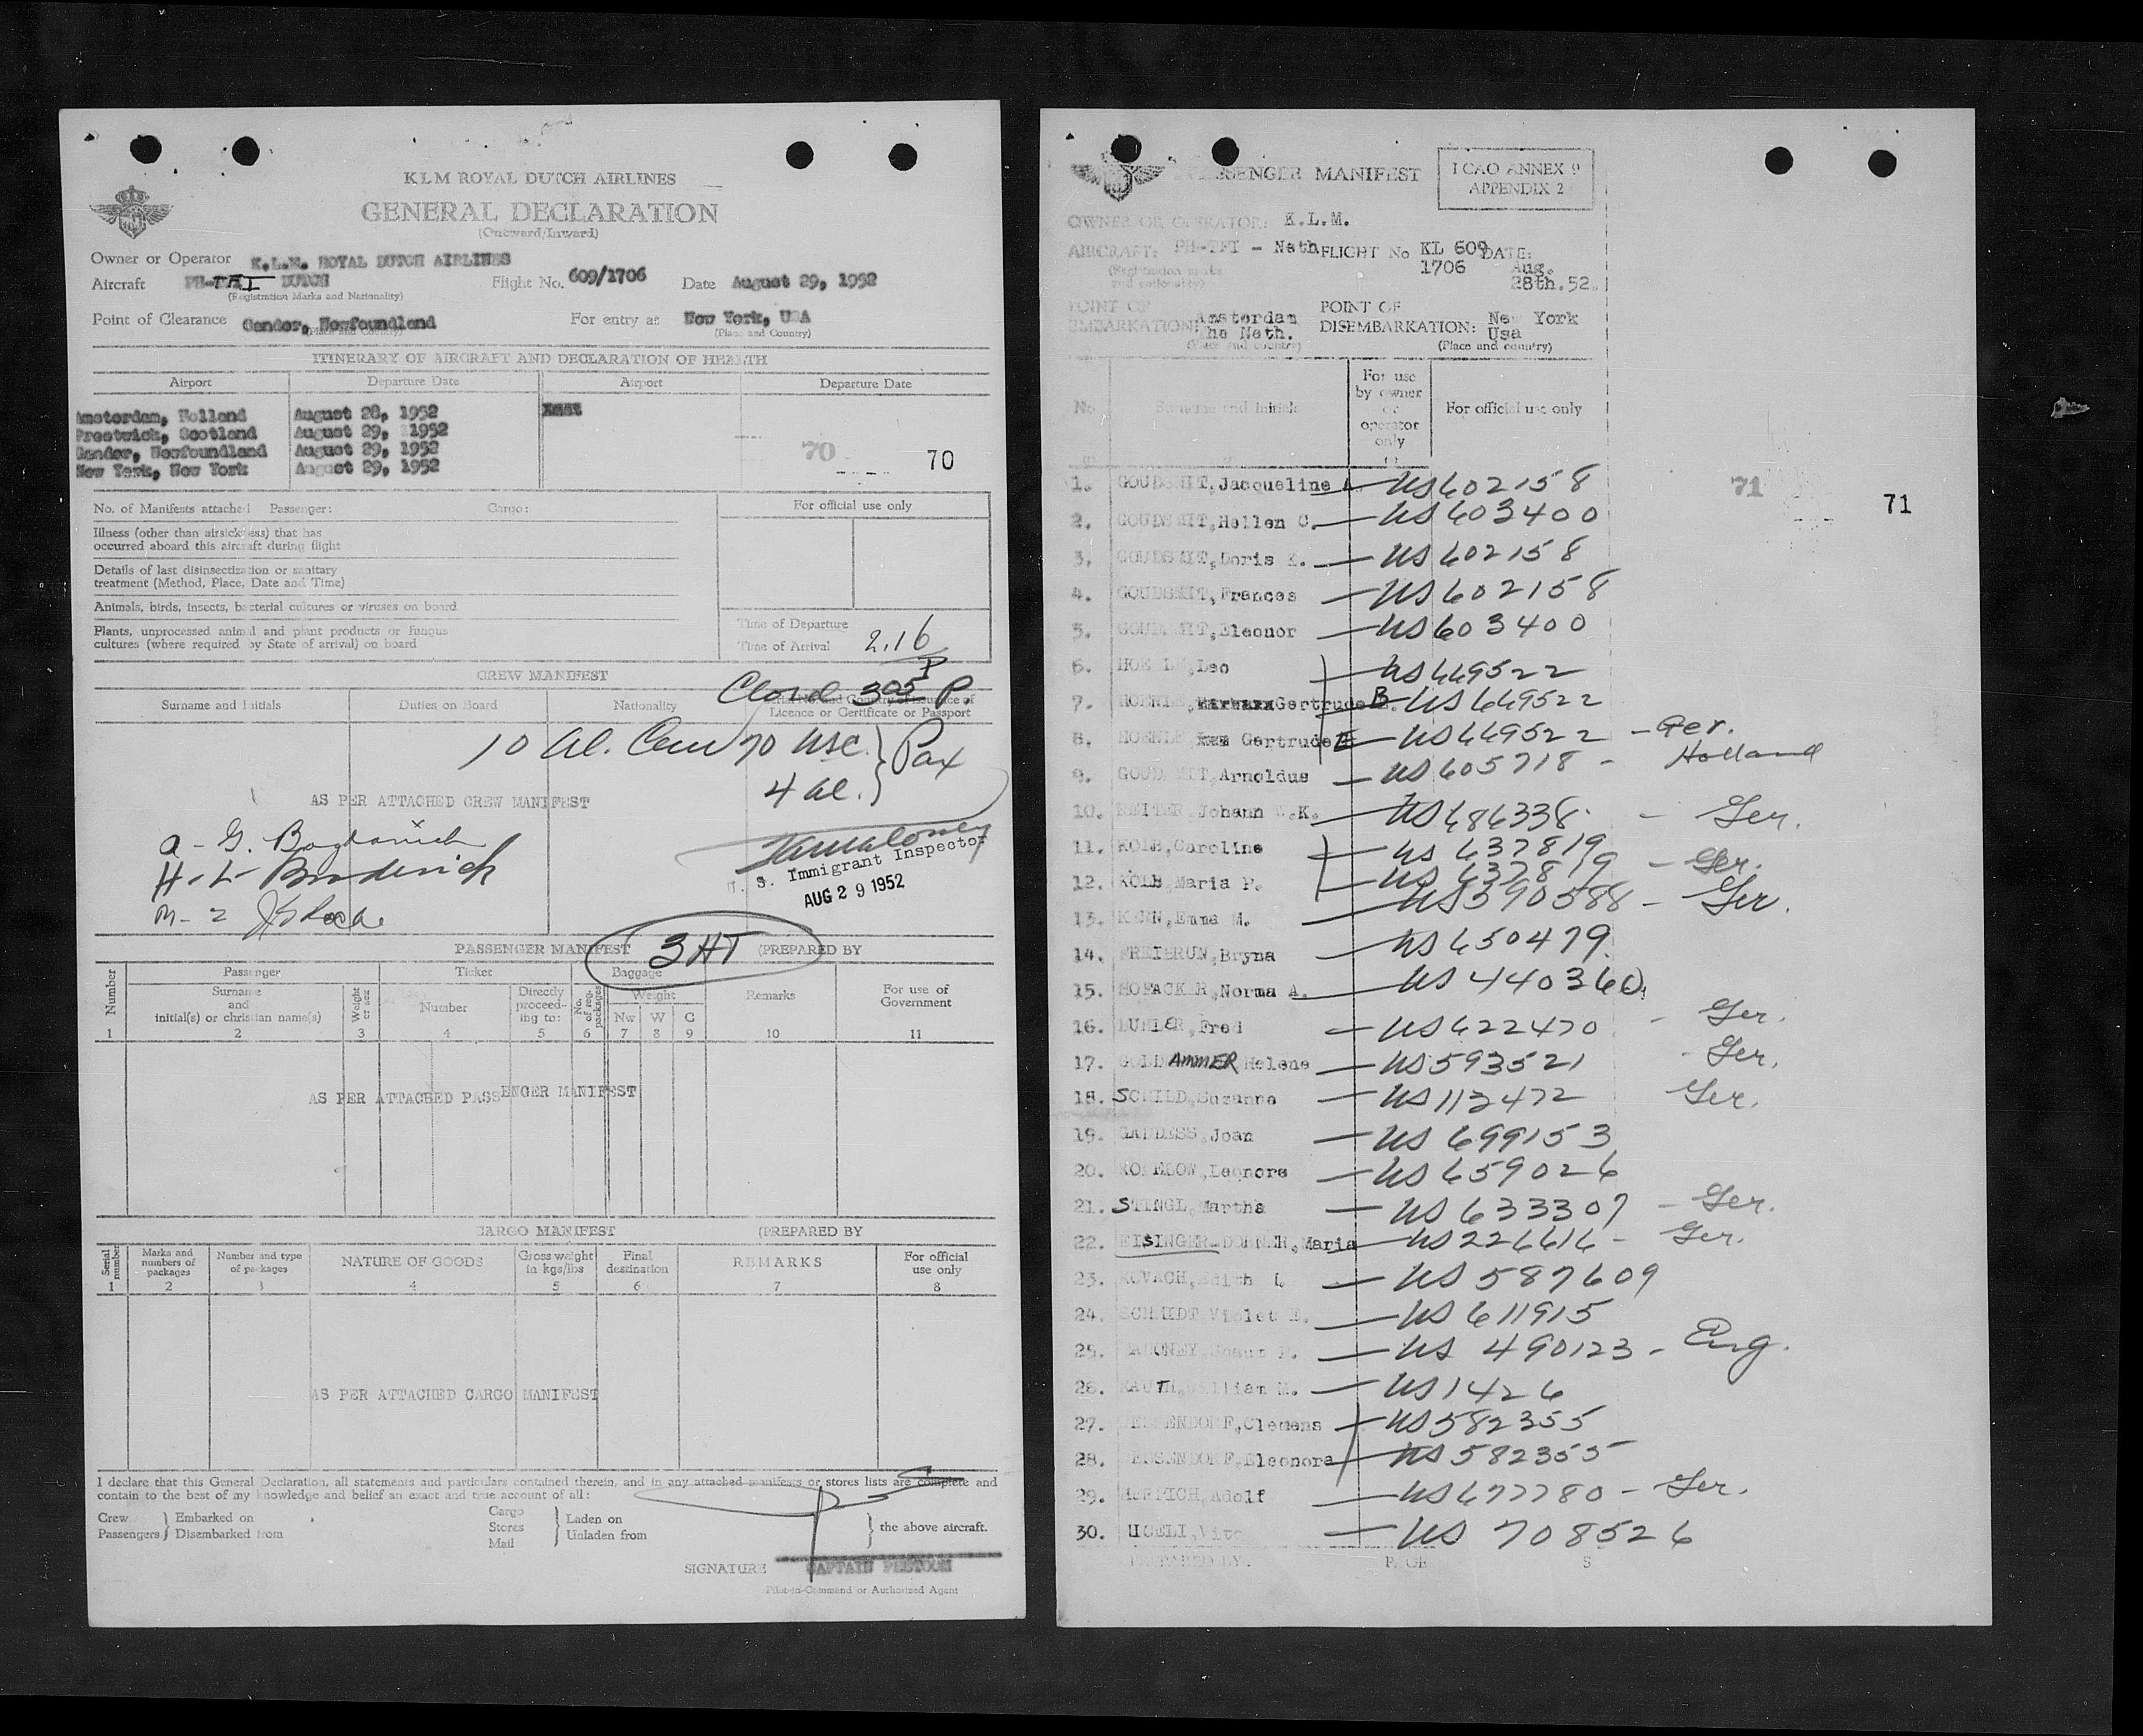 KLM ROYAL DUTCH AIRLINES
GENERAL DECLARATION
(Outward/Inward)
Owner or Operator K.L.M. ROYAL DUTCH AIRLINES
Aircraft PH-TFI DUTCH Flight No. 609/1706 Date August 29, 1952
(Registration Marks and Nationality)
Point of Clearance Gander, Newfoundland For entry at New York, USA
(Place and Country) (Place and Country)
ITINERARY OF AIRCRAFT AND DECLARATION OF HEALTH
Airport Departure Date Airport Departure Date
Amsterdam, Holland August 28, 1952
Prestwick, Scotland August 29, 1952
Gander, Newfoundland August 29, 1952
New York, New York August 29, 1952
70 70
No. of Manifests attached Passenger: Cargo: For official use only
Illness (other than airsickness) that has
occurred aboard this aircraft during flight
Details of last disinsectization or sanitary
treatment (Method, Place, Date and Time)
Animals, birds, insects, bacterial cultures or viruses on board
Plants, unprocessed animal and plant products or fungus
cultures (where required by State of arrival) on board
Time of Departure
Time of Arrival 2.16 P
CREW MANIFEST
Closed 305 P.
Surname and Initials Duties on Board Nationality Serial No. and Country of Issuance of
Licence or Certificate or Passport
10 Al. Crew 70 USC. } Pax
4 al.
AS PER ATTACHED CREW MANIFEST
a - G. Bogdanich
H - L Broderich
M - 2
U. S. Immigrant Inspector
AUG 29 1952
PASSENGER MANIFEST (PREPARED BY
3 HT
Number Passenger Ticket Baggage Remarks For use of
Government
Surname
and
initial(s) or christian name(s) Weight
or sex Number Directly
proceed-
ing to: No.
of reg.
packages Weight
Nw W C
1 2 3 4 5 6 7 8 9 10 11
AS PER ATTACHED PASSENGER MANIFEST
CARGO MANIFEST (PREPARED BY
Serial
number Marks and
numbers of
packages Number and type
of packages NATURE OF GOODS Gross weight
in kgs/lbs Final
destination REMARKS For official
use only
1 2 3 4 5 6 7 8
AS PER ATTACHED CARGO MANIFEST
I declare that this General Declaration, all statements and particulars contained therein, and in any attached manifests or stores lists are complete and
contain to the best of my knowledge and belief an exact and true account of all:
Crew } Embarked on
Passengers } Disembarked from
Cargo
Stores
Mail } Laden on
Unladen from } the above aircraft.
SIGNATURE CAPTAIN
Pilot-in-Command or Authorized Agent
PASSENGER MANIFEST
I CAO ANNEX 9
APPENDIX 2
OWNER OR OPERATOR: K.L.M.
AIRCRAFT: PH-TFI - Neth FLIGHT No KL 609 DATE:
1706 Aug.
28th.52.
(Registration marks
and nationality)
POINT OF
EMBARKATION: Amsterdam
The Neth. POINT OF
DISEMBARKATION: New York
Usa
(Place and country) (Place and country)
No Surname and initials For use
by owner
or
operator
only For official use only
71 71
1. GOUDSMIT, Jacqueline A. — US602158
2. GOUDSMIT, Hellen C. — US603400
3. GOUDSMIT, Doris E. — US602158
4. GOUDSMIT, Frances — US602158
5. GOUDSMIT, Eleonor — US603400
6. HOERLE, Leo — US669522
7. HOERLE, Gertrude B. — US669522
8. HOERLE, Gertrude E — US669522 - Ger.
9. GOUDSMIT, Arnoldus — US605718 - Holland
10. REITER, Johann W.K. — US686338 - Ger.
11. KOLB, Caroline — US 637819
12. KOLB, Maria P. — US 637819 - Ger.
13. KERN, Emma M. — US390588 - Ger.
14. FREIBRUN, Bryna — US650479
15. HOFACKER, Norma A. — US 440360
16. Fred — US622470 - Ger.
17. GOLDAMMER Helene — US593521 - Ger.
18. SCHILD, Suzanna — US113472 Ger.
19. GADDESS, Joan — US 699153
20. Leonora — US659026
21. STINGL, Martha — US 633307 - Ger.
22. EISINGER-DORNER, Maria — US226616 - Ger.
23. KOVACH, Edith L — US 587609
24. SCHMIDT Violet E. — US 611915
25. MAHONEY, — US 490123 - Eng.
26. KAUTH, William M. — US1426
27. Clemens — US582355
28. Eleonora — US582355
29. Adolf — US677780 - Ger.
30. Vito — US 708526
PREPARED BY: PAGE S